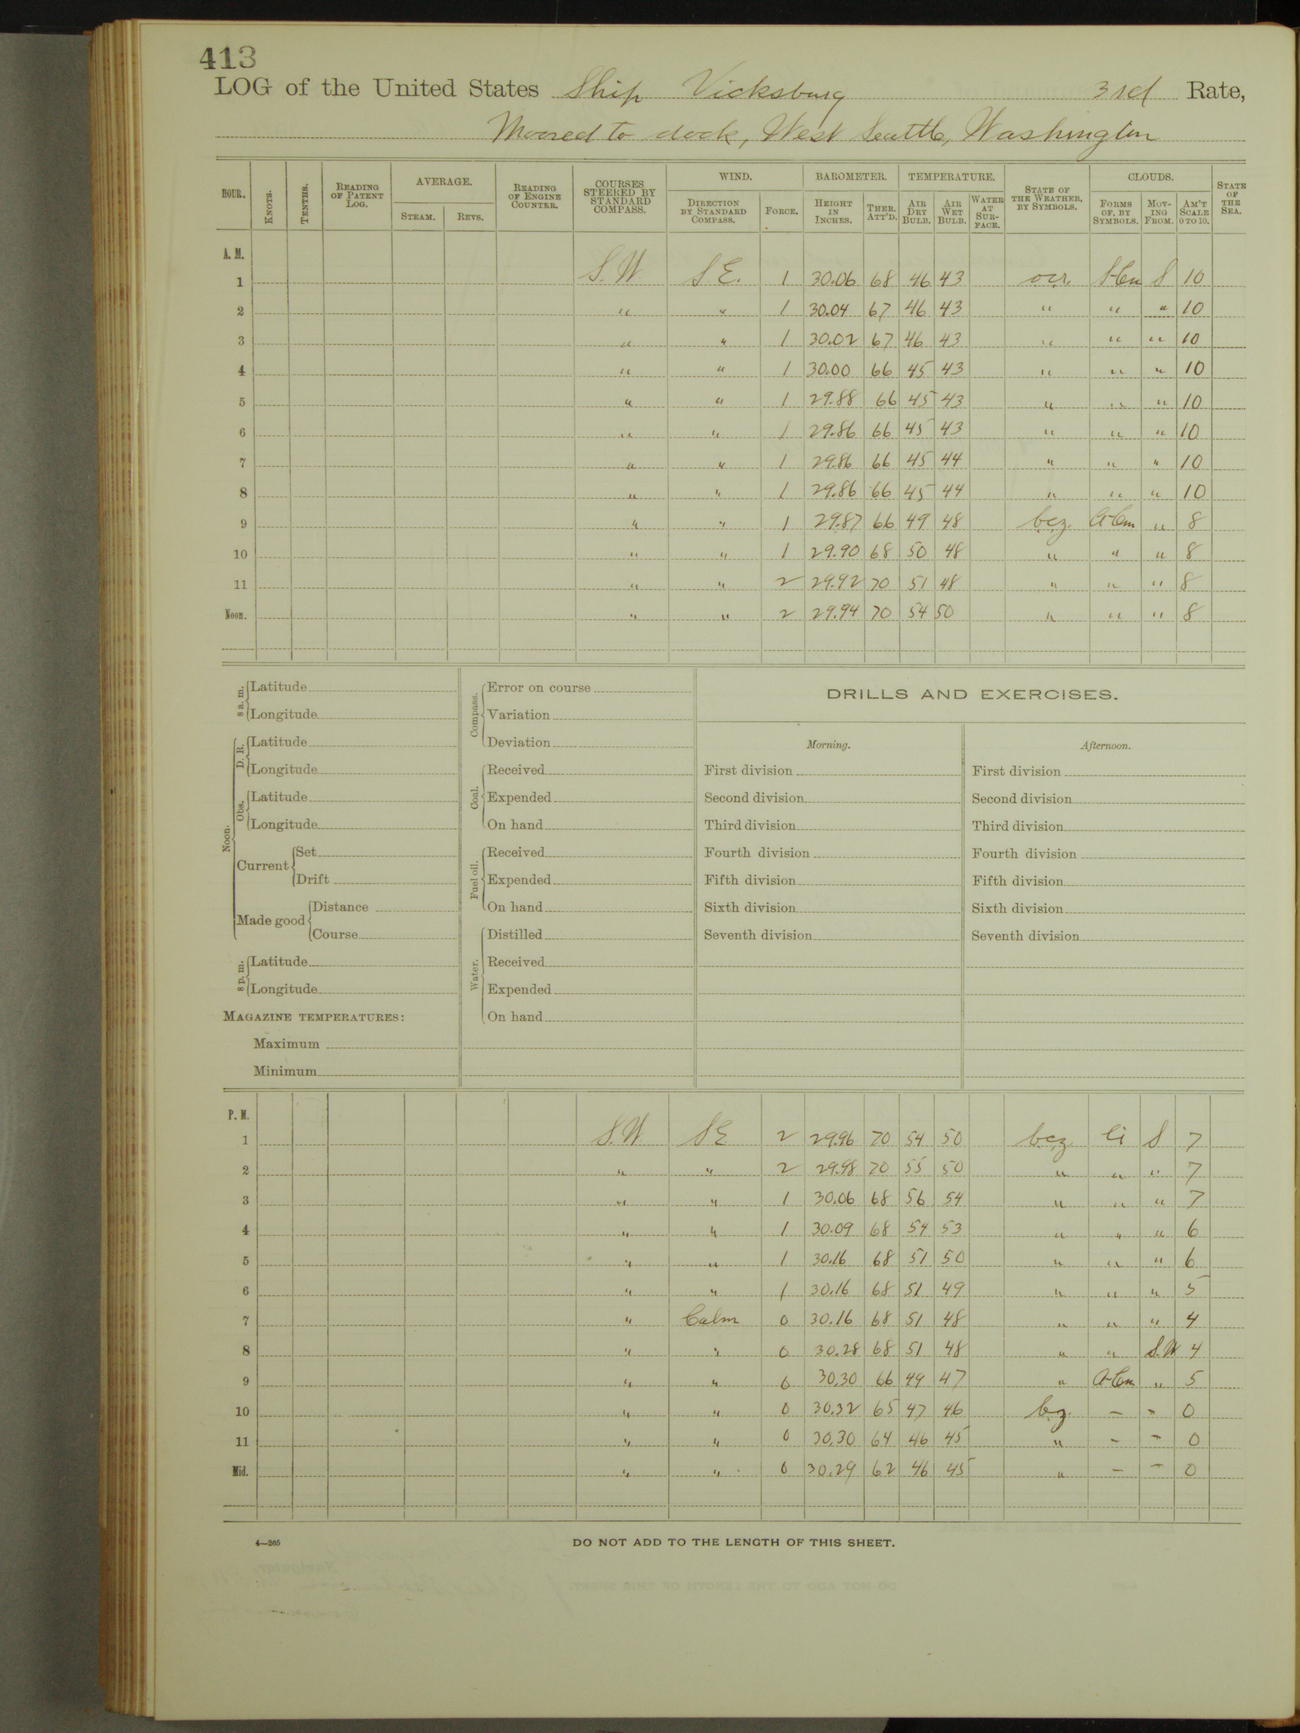 413
LOG of the United States Ship Vicksburg 3rd Rate,
Moored to dock, West Seattle, Washington
HOUR. KNOTS. TENTHS. READING OF PATENT LOG. AVERAGE. STEAM. REVS. READING OF ENGINE COUNTER. COURSES STEERED BY STANDARD COMPASS. WIND. DIRECTION BY STANDARD COMPASS. FORCE. BAROMETER. HEIGHT IN INCHES. THER. ATT'D. TEMPERATURE. AIR DRY BULB. AIR WET BULB. WATER AT SURFACE. STATE OF THE WEATHER, BY SYMBOLS. CLOUDS. FORMS OF, BY SYMBOLS. MOVING FROM. AM'T SCALE 0 TO 10. STATE OF THE SEA.
A. M.
1 S.W S E. 1 30.06 68 46 43 ocr. S-Cu S 10
2 " " 1 30.04 67 46 43 " " " 10
3 " " 1 30.02 67 46 43 " " " 10
4 " " 1 30.00 66 45 43 " " " 10
5 " " 1 29.88 66 45 43 " " " 10
6 " " 1 29.86 66 45 43 " " " 10
7 " " 1 29.86 66 45 44 " " " 10
8 " " 1 29.86 66 45 44 " " " 10
9 " " 1 29.87 66 49 48 bcz. A-Cu " 8
10 " " 1 29.90 68 50 48 " " " 8
11 " " 2 29.92 70 51 48 " " " 8
Noon. " " 2 29.94 70 54 50 " " " 8
8 a. m. Latitude
Longitude
Noon. D. R. Latitude
Longitude
Obs. Latitude
Longitude
Current Set
Drift
Made good Distance
Course
8 p. m. Latitude
Longitude
MAGAZINE TEMPERATURES:
Maximum
Minimum
Compass. Error on course
Variation
Deviation
Coal. Received
Expended
On hand
Fuel oil. Received
Expended
On hand
Water. Distilled
Received
Expended
On hand
DRILLS AND EXERCISES.
Morning.
First division
Second division
Third division
Fourth division
Fifth division
Sixth division
Seventh division
Afternoon.
First division
Second division
Third division
Fourth division
Fifth division
Sixth division
Seventh division
P. M.
1 S.W S E 2 29.96 70 54 50 bcz. Ci S 7
2 " " 2 29.98 70 55 50 " " " 7
3 " " 1 30.06 68 56 54 " " " 7
4 " " 1 30.09 68 54 53 " " " 6
5 " " 1 30.16 68 51 50 " " " 6
6 " " 1 30.16 68 51 49 " " " 5
7 " Calm 0 30.16 68 51 48 " " " 4
8 " " 0 30.28 68 51 48 " " S.W 4
9 " " 0 30.30 66 49 47 " A-Cu " 5
10 " " 0 30.32 65 47 46 bz. — - 0
11 " " 0 30.30 64 46 45 " - - 0
Mid. " " 0 30.29 62 46 45 " — - 0
4—265
DO NOT ADD TO THE LENGTH OF THIS SHEET.